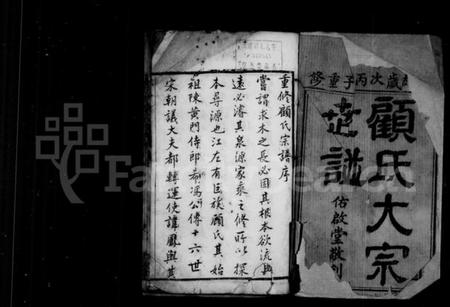 歲次丙子重修
顧氏大宗
譜
佑啟堂敬刊
重修顧氏宗譜序
嘗謂求木之長必固其根本欲流之
遠必濬其泉源家乘之修所以探
本尋源也江左有巨族顧氏其始
祖陳黃門侍郎希馮公傳十六世
宋朝議大夫都轉運使諱鳳與其